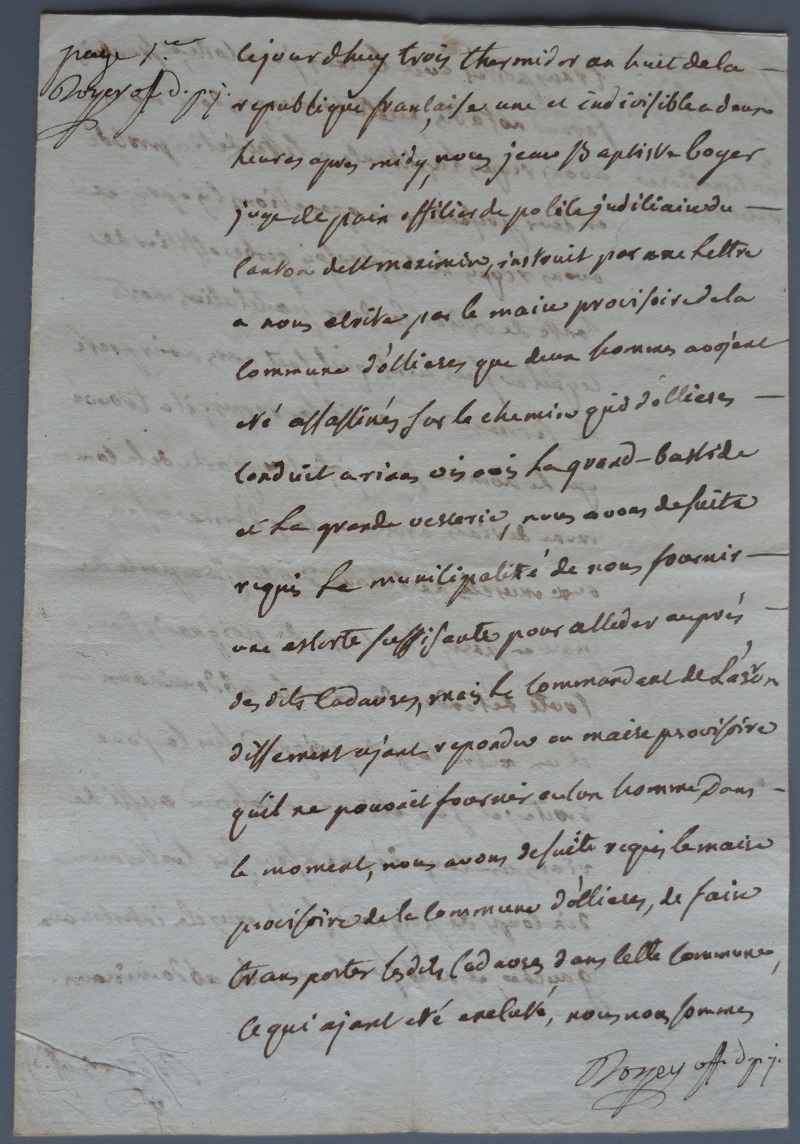 page 1.re
Boyer off. d. p. j.
Cejourdhuy trois thermidor an huit de la —
republique francaise une et indivisible a deux
heures apres midy, nous jean Baptiste boyer
juge de paix officier de police judiciaire du —
canton de St maximin, instruit par une Lettre
a nous ecrite par le maire provisoire de la
commune d'ollieres que deux hommes avojent
eté assassinés sur le chemin qui d'ollieres —
conduit a rians vis avis La grand-bastide
et La grande verrerie, nous avons de suite
requis La municipalité de nous fournir —
une escorte suffisante pour acceder auprés —
des dits Cadavres, mais Le Commandant de L'aron
dissement ajant repondu au maire provisoire
qu'il ne pouvoit fournir aucun homme Dans —
le moment, nous avons de suite requis le maire
provisoire de la Commune d'ollieres, de faire
transporter lesdits Cadavres dans cette Commune,
Ce qui ajant eté executé, nous nous sommes
Boyer off. d. p. j.